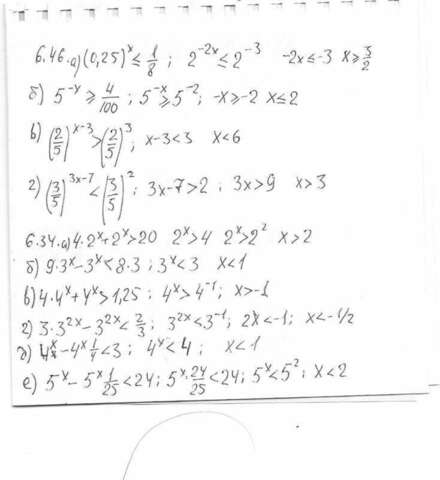 6.46. а) (0,25)^x ≤ 1/8 ; 2^(-2x) ≤ 2^(-3) -2x ≤ -3 x ≥ 3/2
б) 5^(-x) ≥ 4/100 ; 5^(-x) ≥ 5^(-2) ; -x ≥ -2 x ≤ 2
в) (2/5)^(x-3) > (2/5)^3 ; x-3 < 3 x < 6
г) (3/5)^(3x-7) < (3/5)^2 ; 3x-7 > 2 ; 3x > 9 x > 3
6.34. а) 4·2^x + 2^x > 20 2^x > 4 2^x > 2^2 x > 2
б) 9·3^x - 3^x < 8·3 ; 3^x < 3 x < 1
в) 4·4^x + 4^x > 1,25 ; 4^x > 4^(-1) ; x > -1
г) 3·3^(2x) - 3^(2x) < 2/3 ; 3^(2x) < 3^(-1) ; 2x < -1 ; x < -1/2
д) 4^x - 4^x 1/4 < 3 ; 4^x < 4 ; x < 1
е) 5^x - 5^x 1/25 < 24 ; 5^x · 24/25 < 24 ; 5^x < 5^2 ; x < 2